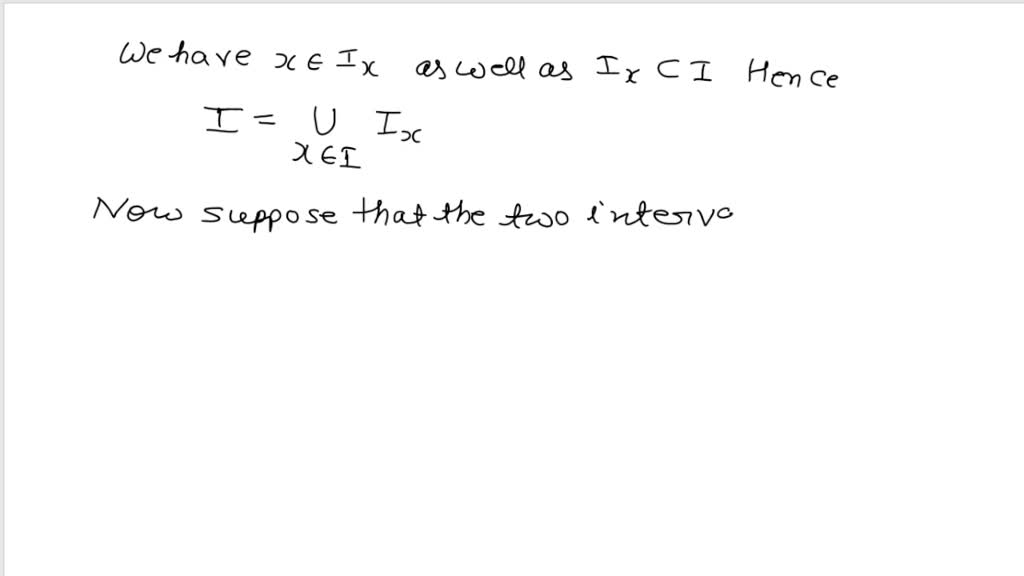 We have x ∈ Iₓ as well as Iₓ ⊂ I Hence
I = ∪ Iₓ
x ∈ I
Now suppose that the two interva